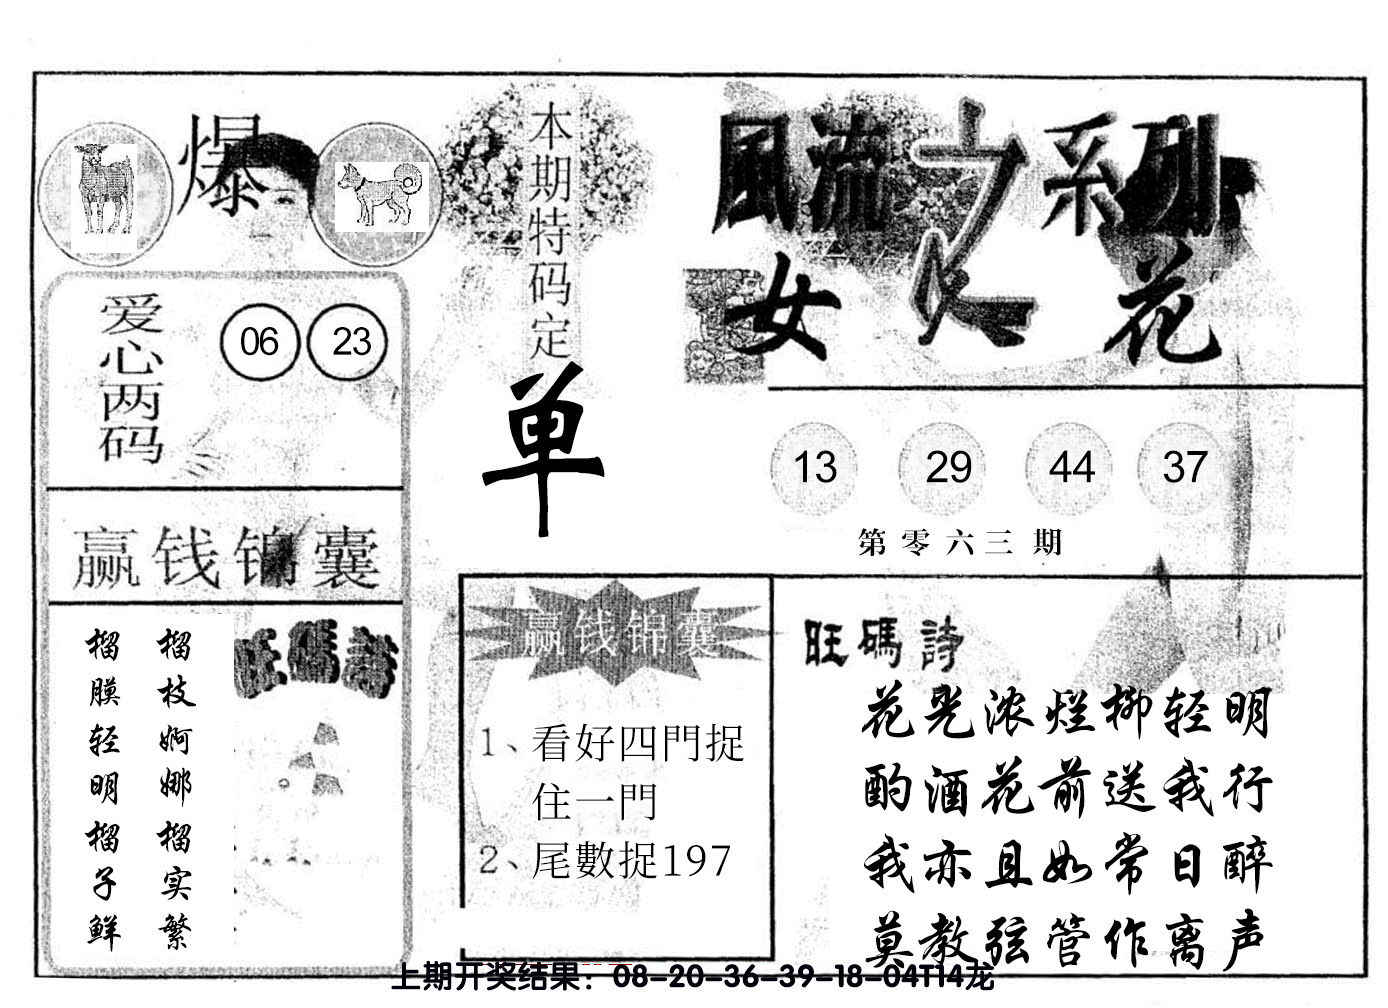 爆
本期特码定
单
風流之系列
女人花
爱心两码
06 23
13 29 44 37
第零六三期
赢钱锦囊
榴枝婀娜榴实繁
榴膜轻明榴子鲜
旺碼詩
赢钱锦囊
1、看好四門捉
住一門
2、尾數捉197
旺碼詩
花光浓烂柳轻明
酌酒花前送我行
我亦且如常日醉
莫教弦管作离声
上期开奖结果：08-20-36-39-18-04T14龙